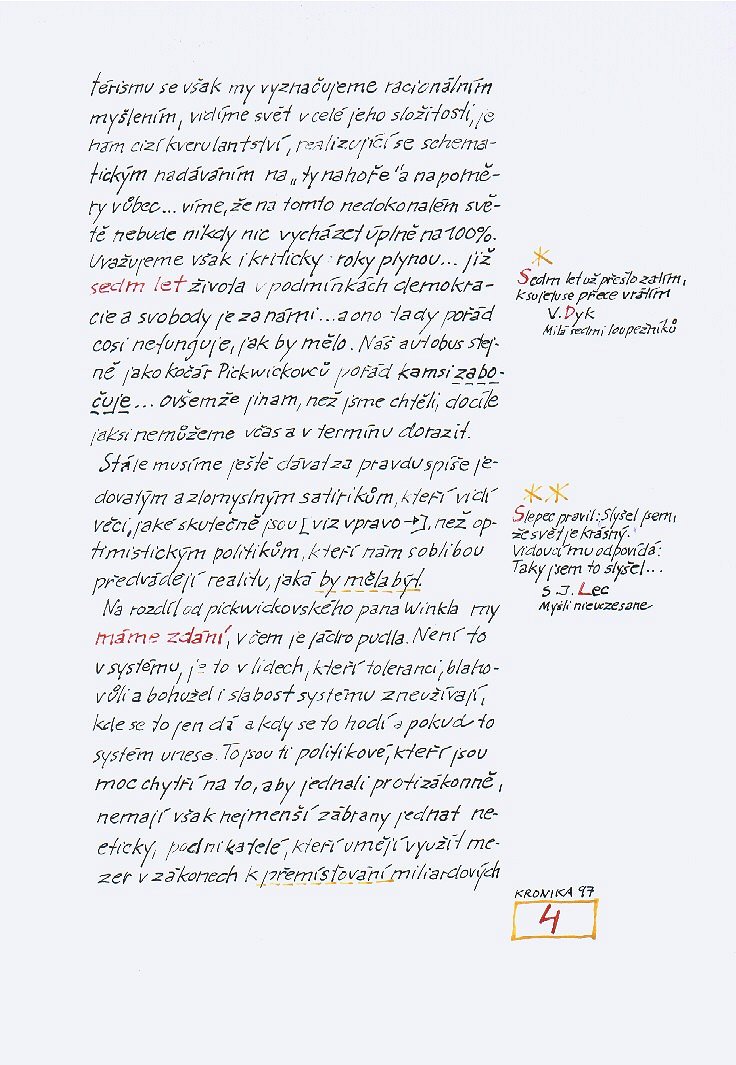 térismu se však my vyznačujeme racionálním
myšlením, vidíme svět v celé jeho složitosti, je
nám cizí kverulantství, realizující se schema-
tickým nadáváním na „ty nahoře“ a na pomě-
ry vůbec... víme, že na tomto nedokonalém svě-
tě nebude nikdy nic vycházet úplně na 100%.
Uvažujeme však i kriticky: roky plynou... již
sedm let života v podmínkách demokra-
cie a svobody je za námi...a ono tady pořád
cosi nefunguje, jak by mělo. Náš autobus stej-
ně jako kočár Pickwickovců pořád kamsi zabo-
čuje... ovšemže jinam, než jsme chtěli, docíle
jaksi nemůžeme včas a v termínu dorazit.
Stále musíme ještě dávat za pravdu spíše je-
dovatým a zlomyslným satirikům, kteří vidí
věci, jaké skutečně jsou [viz vpravo →], než op-
timistickým politikům, kteří nám s oblibou
předvádějí realitu, jaká by měla být.
Na rozdíl od pickwickovského pana Winkla my
máme zdání, v čem je jádro pudla. Není to
v systému, je to v lidech, kteří toleranci, blaho-
vůli a bohužel i slabost systému zneužívají,
kde se to jen dá a kdy se to hodí a pokud to
systém unese. To jsou ti politikové, kteří jsou
moc chytří na to, aby jednali protizákonně,
nemají však nejmenší zábrany jednat ne-
eticky, podnikatelé, kteří umějí využít me-
zer v zákonech k přemísťování miliardových
*
Sedm let už přešlo zatím,
k sujetu se přece vrátím
V. Dyk
Milá sedmi loupežníků
**
Slepec pravil: Slyšel jsem,
že svět je krásný.
Vidoucí mu odpovídá:
Taky jsem to slyšel...
S. J. Lec
Myšli neuczesane
KRONIKA 97
4